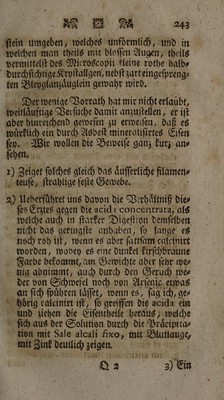 243
stein umgeben, welches unförmlich, und in
welchen man theils mit blossen Augen, theils
vermittelst des Microscopii kleine rothe halb-
durchsichtige Krystallgen, nebst zart eingespreng-
ten Bleyglanzäuglein gewahr wird.
Der wenige Vorrath hat mir nicht erlaubt,
weitläuftige Versuche damit anzustellen, er ist
aber hinreichend gewesen zu erweisen, daß es
würklich ein durch Asbest mineralisirtes Eisen
sey. Wir wollen die Beweise ganz kurz an-
sehen.
1) Zeiget solches gleich das äusserliche filamen-
teuse, strahlige feste Gewebe.
2) Ueberführet uns davon die Verhältniß die-
ses Erztes gegen die acida concentrata, als
welche auch in starker Digestion demselben
nicht das geringste anhaben, so lange es
noch roh ist, wenn es aber sattsam calcinirt
worden, wobey es eine dunkel kirschbraune
Farbe bekommt, am Gewichte aber hier we-
nig abnimmt, auch durch den Geruch we-
der von Schwefel noch von Arsenic etwas
an sich spühren lässet, wenn es, sag ich, ge-
hörig calcinirt ist, so greiffen die acida ein
und ziehen die Eisentheile heraus, welche
sich aus der Solution durch die Präcipita-
tion mit Sale alcali fixo, mit Blutlauge,
mit Zink deutlich zeigen.
Q 2 3) Ein